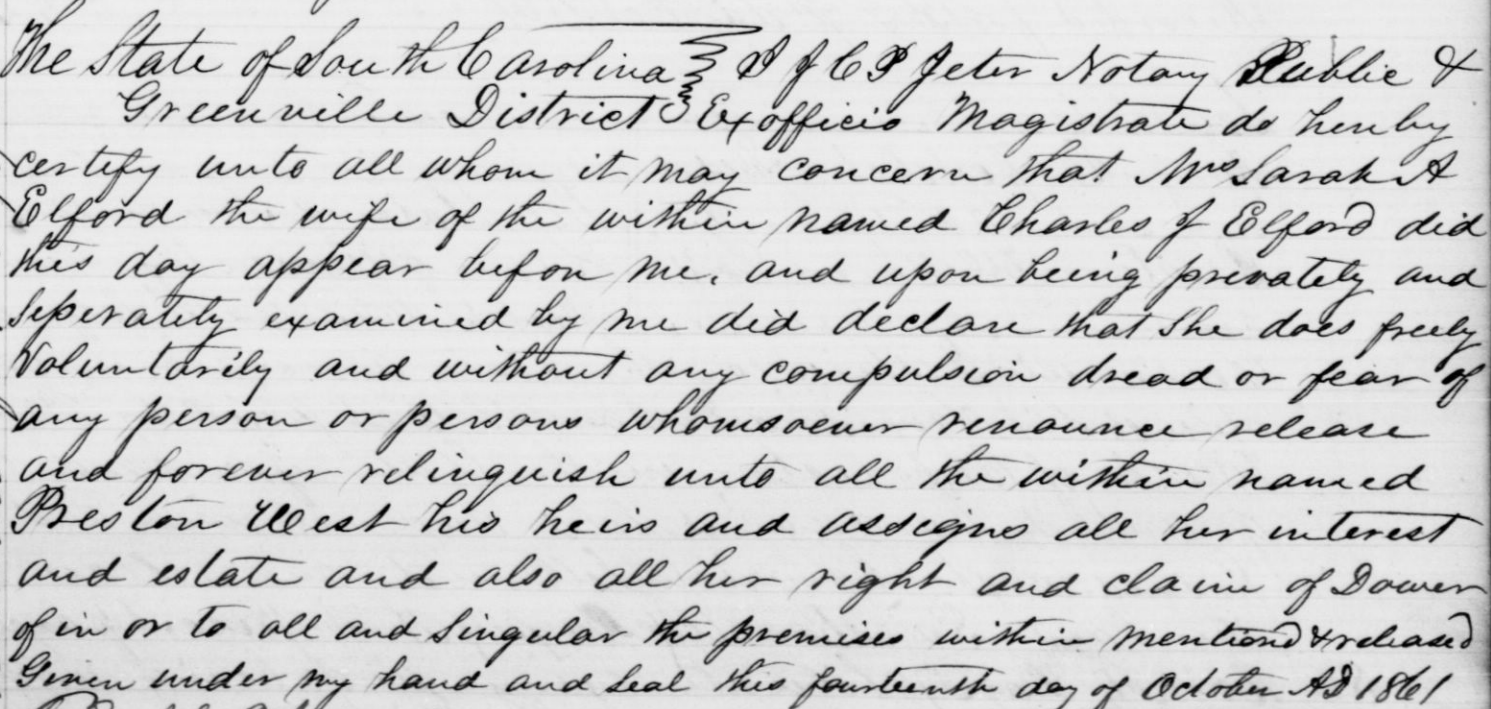 The State of South Carolina } I J C P Jeter Notary Public &
Greenville District } Exofficio Magistrate do hereby
certify unto all whom it may concern that Mrs Sarah A
Elford the wife of the within named Charles J Elford did
this day appear before me, and upon being privately and
seperately examined by me did declare that She does freely
Voluntarily and without any compulsion dread or fear of
any person or persons whomsoever renounce release
and forever relinquish unto all the within named
Preston West his heirs and assigns all her interest
and estate and also all her right and claim of Dower
of in or to all and Singular the premises within mentiond & released
Given under my hand and Seal this fourteenth day of October AD 1861